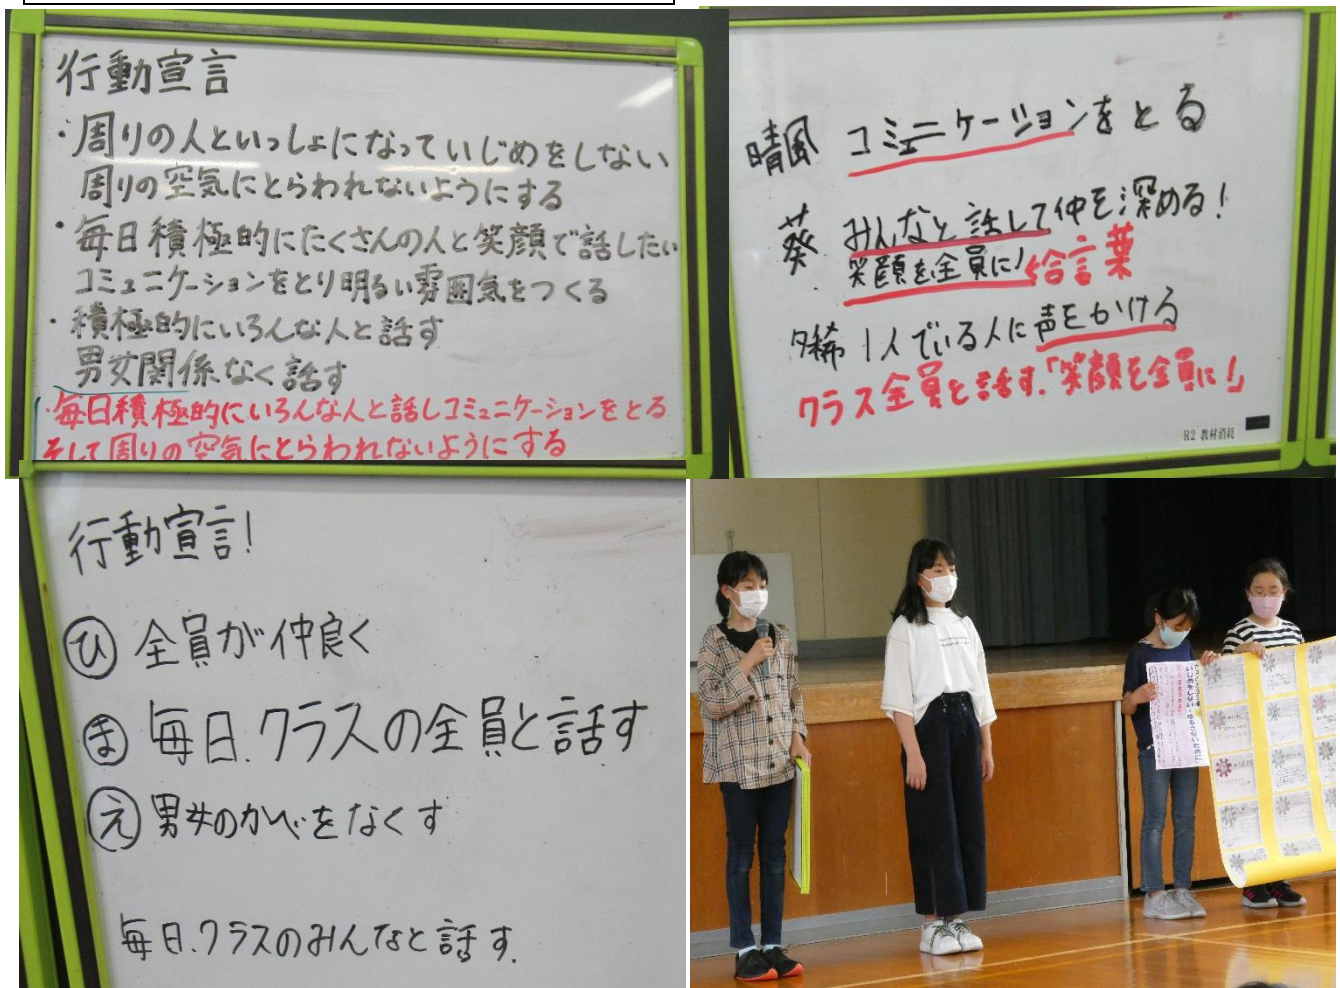 行動宣言
・周りの人といっしょになっていじめをしない
周りの空気にとらわれないようにする
・毎日積極的にたくさんの人と笑顔で話したい
コミュニケーションをとり明るい雰囲気をつくる
・積極的にいろんな人と話す
男女関係なく話す
・毎日積極的にいろんな人と話しコミュニケーションをとる
そして周りの空気にとらわれないようにする
晴風 コミュニケーションをとる
葵 みんなと話して仲を深める!
笑顔を全員に! 合言葉
1人でいる人に声をかける
クラス全員と話す.「笑顔を全員に!」
R2 教材消耗
行動宣言!
ひ 全員が仲良く
ま 毎日.クラスの全員と話す
え 男女のかべをなくす
毎日.クラスのみんなと話す.
いじめをしない ゆるさないために